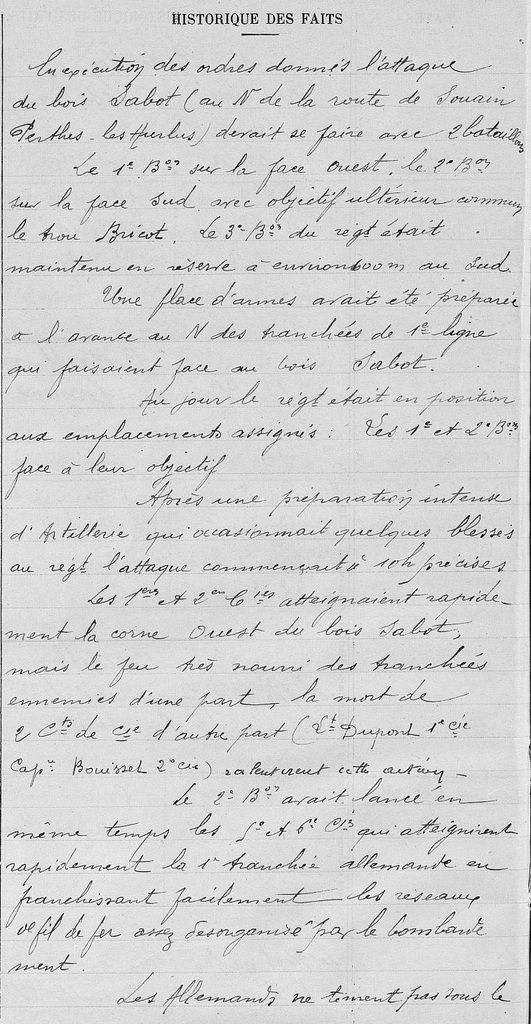 HISTORIQUE DES FAITS
En exécution des ordres donnés l'attaque
du bois Sabot (au N de la route de Souain
Perthes-les-Hurlus) devait se faire avec 2 bataillons
Le 1e Bon sur la face Ouest, le 2e Bon
sur la face Sud avec objectif ultérieur commun
le trou Bricot. Le 3e Bon du régt était
maintenu en réserve à environ 600m au Sud.
Une place d'armes avait été préparée
à l'avance au N des tranchées de 1e ligne
qui faisaient face au bois Sabot.
Au jour le régt était en position
aux emplacements assignés : Les 1e et 2e Bons
face à leur objectif
Après une préparation intense
d'Artillerie qui occasionnait quelques blessés
au régt l'attaque commençait à 10h précises
Les 1ères et 2em Cies atteignaient rapide-
ment la corne Ouest du bois Sabot,
mais le feu très nourri des tranchées
ennemies d'une part, la mort de
2 Cts de Cie d'autre part (Lt Dupont 1e Cie
Capne Bouisset 2e Cie) ralentirent cette action -
Le 2e Bon avait lancé en
même temps les 5e et 6e Cies qui atteignirent
rapidement la 1e tranchée allemande en
franchissant facilement les réseaux
de fil de fer assez désorganisé par le bombarde
ment.
Les Allemands ne tiennent pas sous le